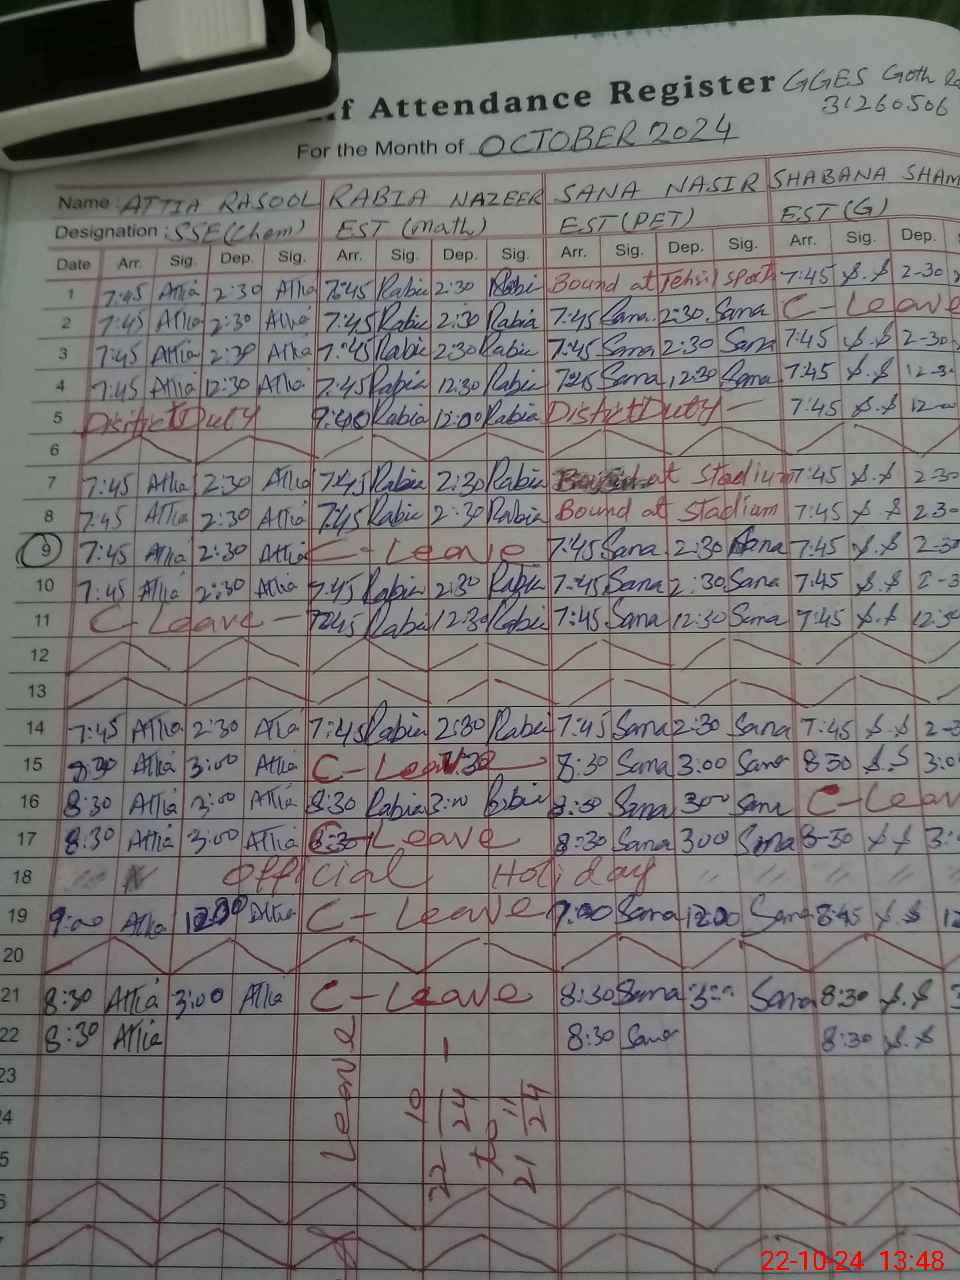 Attendance Register GGES Goth
31260506
For the Month of OCTOBER 2024
Name : ATTIA RASOOL RABIA NAZEER SANA NASIR SHABANA SHAM
Designation : SSE (Chem) EST (math) EST (PET) EST (G)
Date Arr. Sig. Dep. Sig. Arr. Sig. Dep. Sig. Arr. Sig. Dep. Sig. Arr. Sig. Dep.
1 7:45 Attia 2:30 Attia 7:45 Rabia 2:30 Rabia Bound at Tehsil sports 7:45 S.S 2-30
2 7:45 Attia 2:30 Attia 7:45 Rabia 2:30 Rabia 7:45 Sana 2:30 Sana C-Leave
3 7:45 Attia 2:30 Attia 7:45 Rabia 2:30 Rabia 7:45 Sana 2:30 Sana 7:45 S.S 2-30
4 7:45 Attia 12:30 Attia 7:45 Rabia 12:30 Rabia 7:45 Sana 12:30 Sana 7:45 S.S 12-3
5 District Duty Rabia 12:00 Rabia District Duty — 7:45 S.S 12-
6
7 7:45 Attia 2:30 Attia 7:45 Rabia 2:30 Rabia at Stadium 7:45 S.S 2-30
8 7:45 Attia 2:30 Attia 7:45 Rabia 2:30 Rabia Bound at Stadium 7:45 S.S 2-30
9 7:45 Attia 2:30 Attia C-Leave 7:45 Sana 2:30 Sana 7:45 S.S 2-30
10 7:45 Attia 2:30 Attia 7:45 Rabia 2:30 Rabia 7:45 Sana 2:30 Sana 7:45 S.S 2-3
11 C-Leave — 7:45 Rabia 12:30 Rabia 7:45 Sana 12:30 Sana 7:45 S.S 12:3
12
13
14 7:45 Attia 2:30 Attia 7:45 Rabia 2:30 Rabia 7:45 Sana 2:30 Sana 7:45 S.S 2-3
15 8:30 Attia 3:00 Attia C-Leave 8:30 Sana 3:00 Sana 8:30 S.S 3:0
16 8:30 Attia 3:00 Attia 8:30 Rabia 3:00 Rabia 8:30 Sana 3:00 Sana C-Leav
17 8:30 Attia 3:00 Attia Leave 8:30 Sana 3:00 Sana 8-30 S.S 3:
18 Official Holiday " " " "
19 9:00 Attia 12:00 Attia C-Leave Sana 12:00 Sana 8:45 S.S 12
20
21 8:30 Attia 3:00 Attia C-Leave 8:30 Sana 3:00 Sana 8:30 S.S 3
22 8:30 Attia 8:30 Sana 8:30 S.S
23
24
5
6
7
Leave
22 10/24 — to 21 11/24
22-10-24 13:48